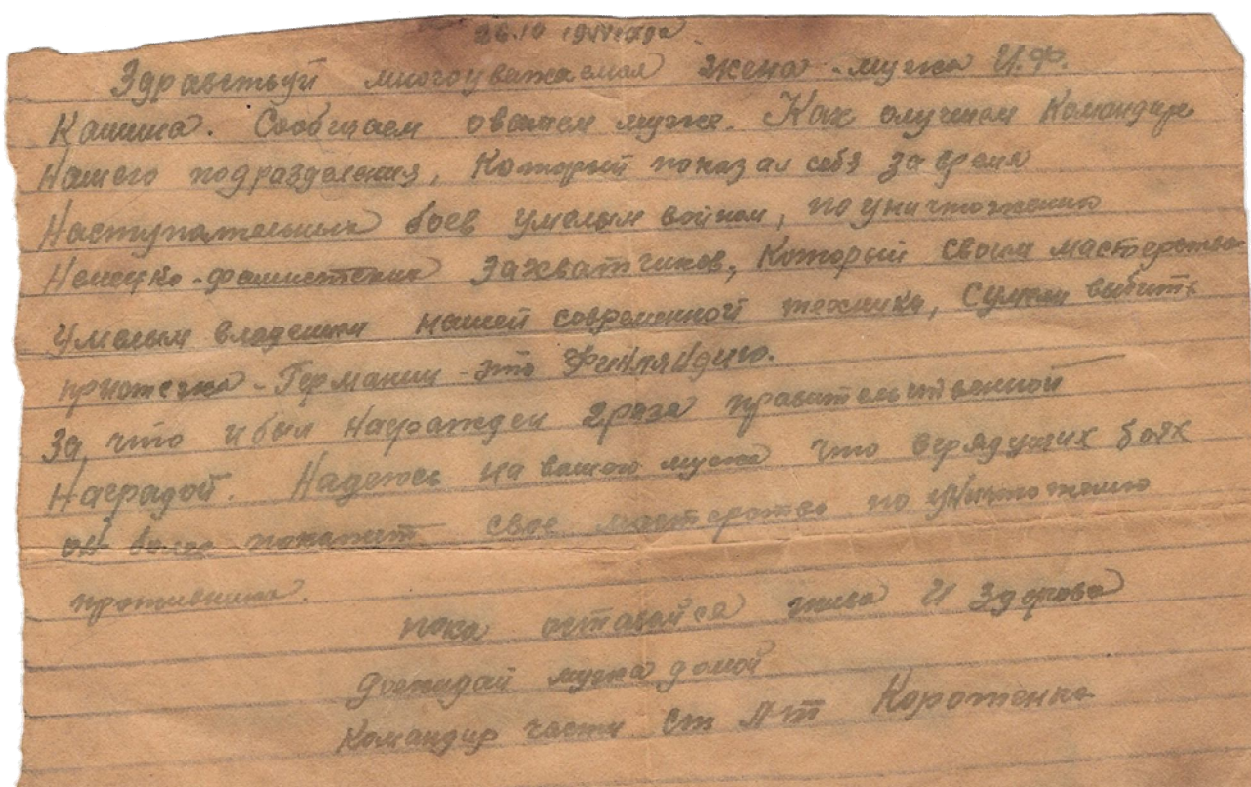 26.10 1944 года
Здравствуй многоуважаемая жена - мужа И.Ф.
Кашина. Сообщаем о вашем муже. Как лучшем Командире
Нашего подразделения, Который показал себя за время
Наступательных боев умелым войном, по уничтожению
Немецко-фашистских Захватчиков, Который своим мастерством
умелым владением нашей современной техники, Сумели выбить
- Германии - это Финляндию.
За, что и был Награжден 2 раза правительственной
Наградой. Надеюсь на вашего мужа что в грядущих боях
он более покажит свое мастерство по уничтожению
противника.
пока оставайся жива и здорова
дожидай мужа домой
Командир части Ст Л-т